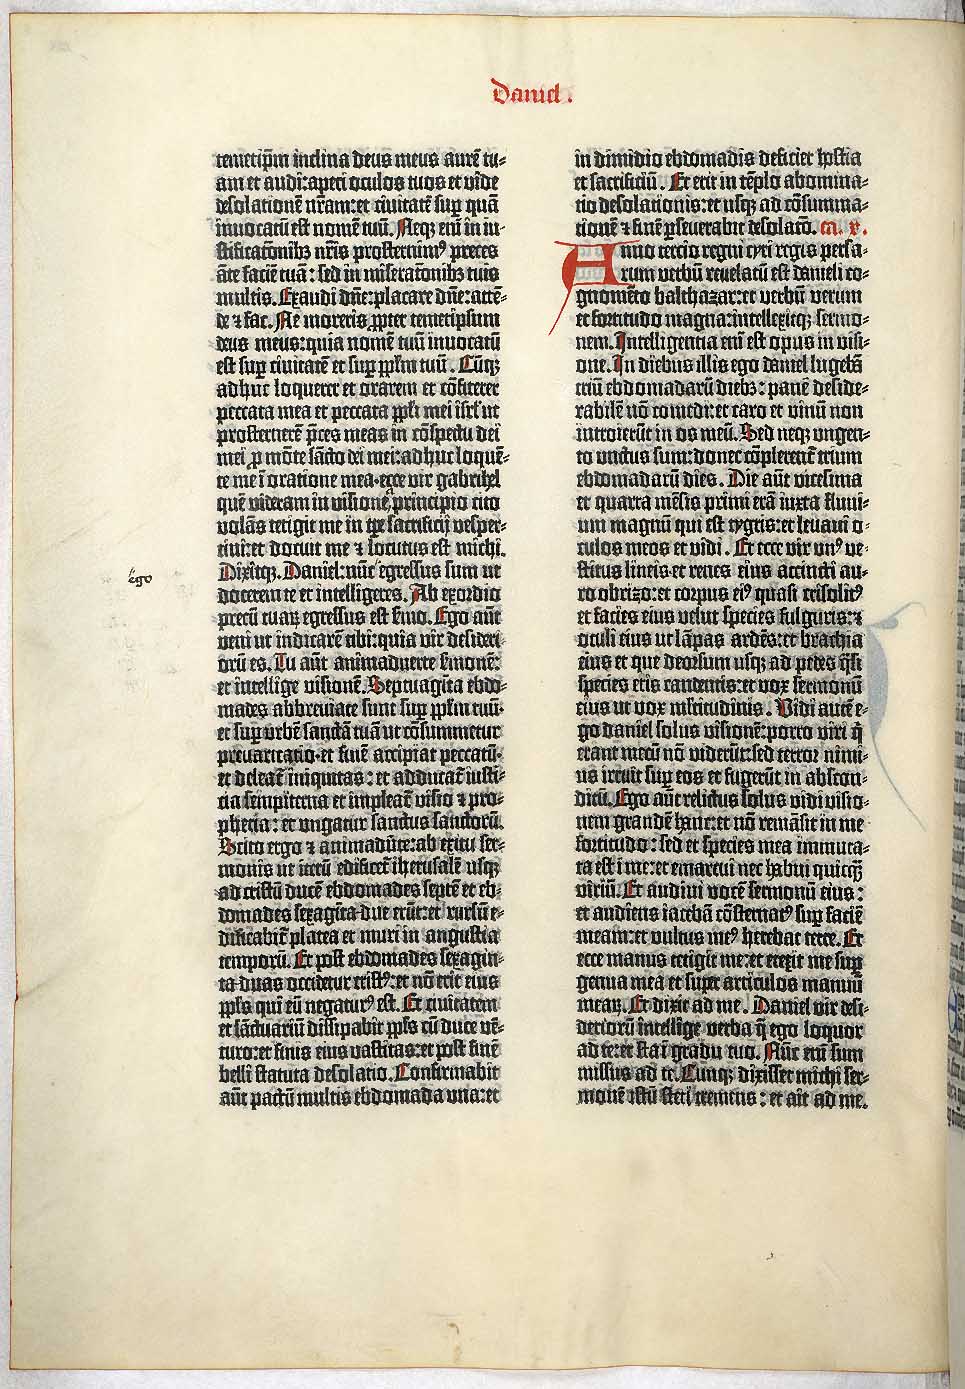 Daniel.
temetip̄m inclina deus meus aurē tu-
am et audi: aperi oculos tuos et vide
desolationē nr̄am: et civitatē sup̄ quā
invocatū est nomē tuū. Neqꝫ eni in iu-
stificatōnibꝫ nr̄is prosternimꝰ preces
āte faciē tuā: sed in miseratōnibꝫ tuis
multis. Exaudi dn̄e: placare dn̄e: attē-
de ⁊ fac. Ne moreris ꝓpter temetipsum
deus meus: quia nomē tuū invocatū
est sup̄ civitatē et sup̄ pp̄lm tuū. Cūqꝫ
adhuc loquerer et orarem et cōfiterer
peccata mea et peccata pp̄li mei isrl̄ ut
prosternerē p̄ces meas in cōspectu dei
mei ꝓ mōte sācto dei mei: adhuc loquē-
te me ī oratione mea·ecce vir gabrihel
quē videram in visionē principio cito
volās tetigit me in tp̄r sacrificij vesper-
tini: et docuit me ⁊ locutus est michi.
Dixitqꝫ. Daniel: nūc egressus sum ut
ego
docerem te et intelligeres. Ab exordio
precū tuaꝝ egressus est s̄mo. Ego aūt
veni ut indicarē tibi: quia vir desideri-
orū es. Tu aūt animadverte s̄monē:
et intellige visionē. Septuagīta ebdo-
mades abbreviate sunt sup̄ pp̄lm tuū·
et sup̄ urbē sanctā tuā ut cōsummetur
prevaricatio·et finē accipiat peccatū·
et deleat̄ iniquitas: et adducat̄ iusti-
cia sempiterna et impleat̄ visio ⁊ pro-
phecia: et ungatur sanctus sanctorū.
Scito ergo ⁊ animadv̄te: ab exitu ser-
monis ut iterū edificet̄ iherusalē usqꝫ
ad cristū ducē ebdomades septē et eb-
domades sexagīta due erūt: et rursū e-
dificabit̄ platea et muri in angustia
temporū. Et post ebdomades sexagin-
ta duas occidetur cristꝰ: et nō erit eius
pp̄ls qui eū negaturꝰ est. Et civitatem
et sāctuariū dissipabit pp̄ls cū duce vē-
turo: et finis eius vastitas: et post finē
belli statuta desolatio. Confirmabit
aūt pactū multis ebdomada una: et
in dimidio ebdomadis deficiet hostia
et sacrificiū. Et erit in tēplo abomina-
tio desolationis: et usqꝫ ad cōsumma-
tionē ⁊ finē ꝑseverabit desolatō. ca. x.
Anno tercio regni cyri regis persa-
rum verbū revelatū est danieli co-
gnomēto balthazar: et verbū verum
et fortitudo magna: intellexitqꝫ sermo-
nem. Intelligentia eni est opus in visi-
one. In diebus illis ego daniel lugebā
triū ebdomadarū diebꝫ: panē deside-
rabilē nō comedi: et caro et vinū non
introierūt in os meū. Sed neqꝫ ungen-
to unctus sum: donec cōplerent̄ trium
ebdomadarū dies. Die aūt vicesima
et quarta mēsis primi erā iuxta fluvi-
um magnū qui est tygris: et levavi o-
culos meos et vidi. Et ecce vir unꝰ ve-
stitus lineis·et renes eius accincti au-
ro obrizo: et corpus eiꝰ quasi crisolitꝰ
et facies eius velut species fulguris: ⁊
oculi eius ut lāpas ardēs: et brachia
eius et que deorsum usqꝫ ad pedes q̄si
species eris candentis: et vox sermonū
eius ut vox multitudinis. Vidi autē e-
go daniel solus visionē: porro viri q̄
erant mecū nō viderūt: sed terror nimi-
us irruit sup̄ eos et fugerūt in abscon-
ditū. Ego aūt relictus solus vidi visio-
nem grandē hanc: et nō remāsit in me
fortitudo: sed et species mea immuta-
ta est ī me: et emarcui nec habui quicqꝫ
viriū. Et audivi vocē sermonū eius:
et audiens iacebā cōsternatꝰ sup̄ faciē
meam: et vultus meꝰ herebat terre. Et
ecce manus tetigit me: et erexit me sup̄
genua mea et super articulos manuū
meaꝝ. Et dixit ad me. Daniel vir desi-
deriorū intellige verba q̄ ego loquor
ad te: et sta ī gradu tuo. Nūc eni sum
missus ad te. Cunqꝫ dixisset michi ser-
monē istū steti tremens: et ait ad me.